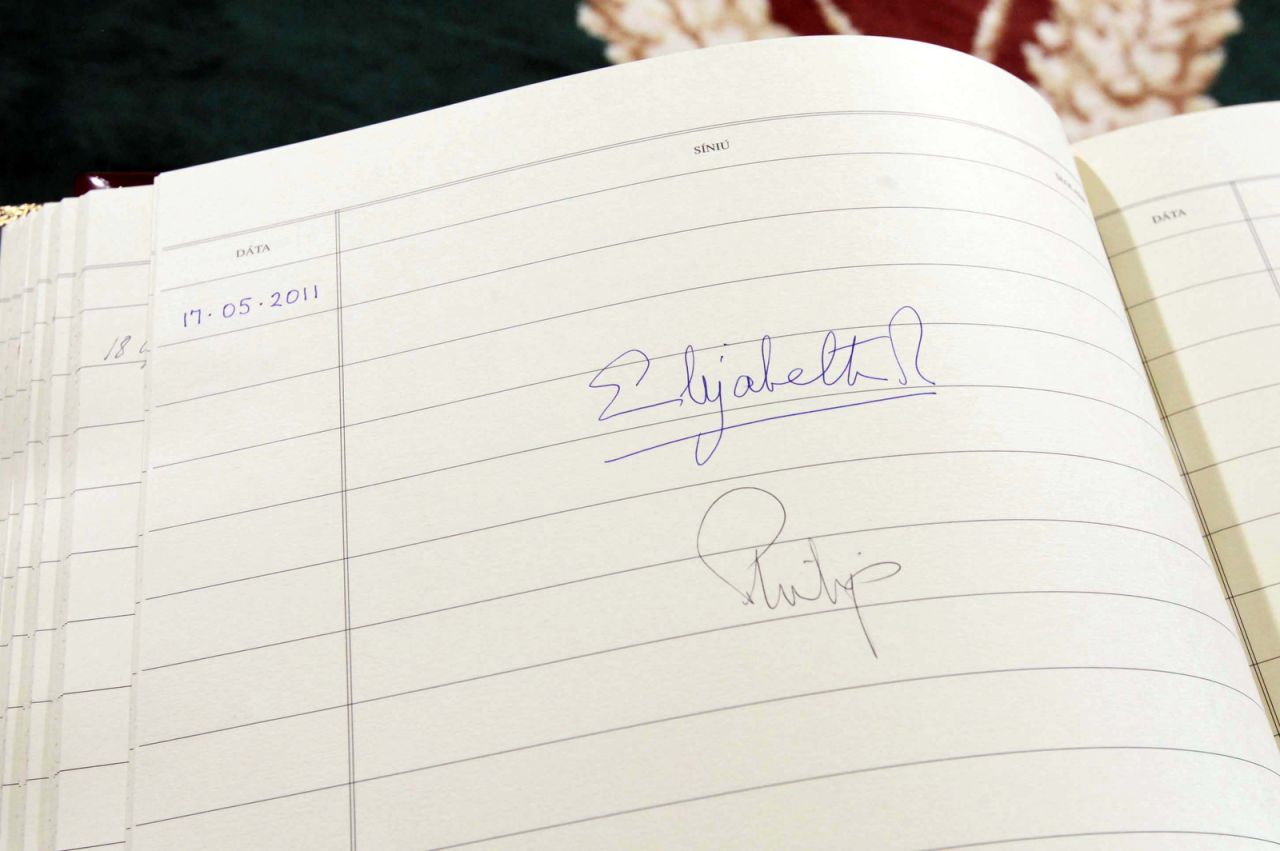 SÍNIÚ
DÁTA
17·05·2011
Elizabeth R
Philip
18
DÁTA